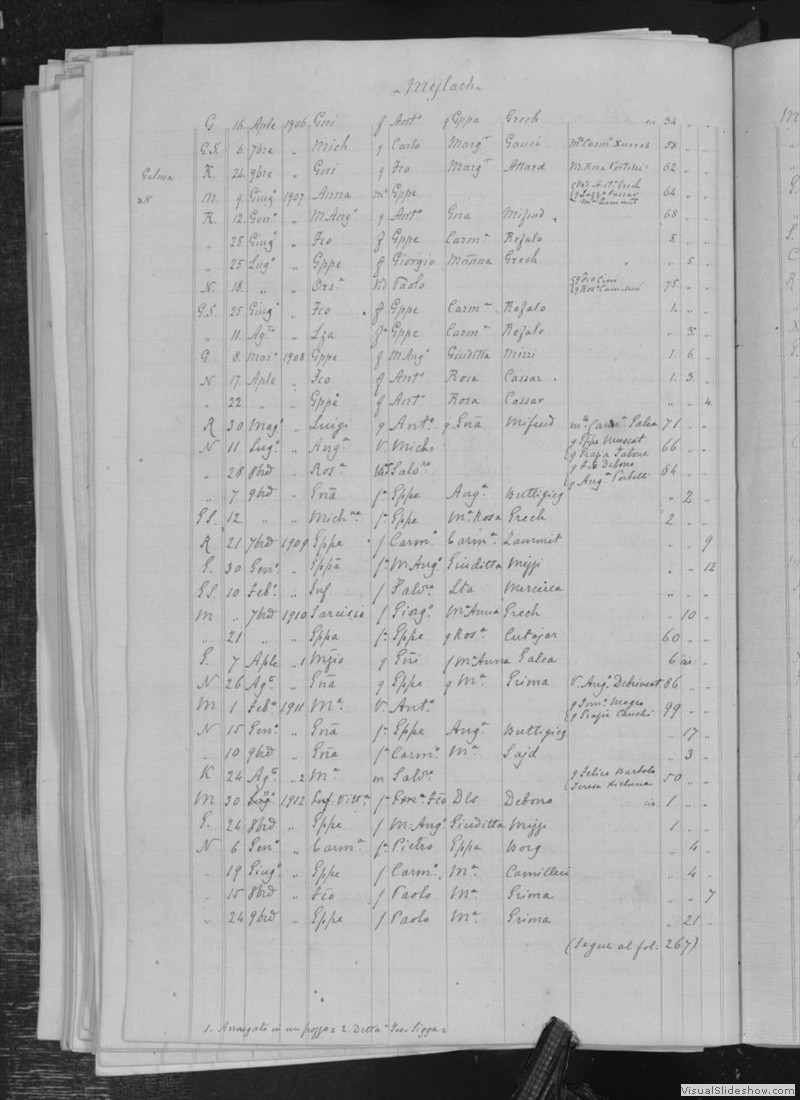 „Mejlach„
G 16 Aple 1906 Gni f Anto q Gppa Grech 34 „ „
G.S. 6 7bre „ Mich q Carlo Margt Gauci Ma Carma 58 „ „
K. 24 9bre „ Gni q Fco Margt Attard Ma Rosa 62 „ „
M 9 Giugo 1907 Anna ma Gppe 64 „ „
R. 12 Geno „ M Ango q Anto Gna Mifsud „ 68 „ „
„ 25 Giugo „ Fco f Gppe Carma Refalo 5 „ „
„ 25 Lugo „ Gppe f Giorgio Mãnna Grech „ 5 „
N 18 „ „ Orsa Vd Paolo 75 „ „
G.S. 25 Giugo „ Fco f Gppe Carma Refalo 1 „ „
„ 11 Agto „ Lza fa Gppe Carma Refalo „ 3 „
G 8 Maro 1908 Gppe f M Ango Giuditta Mizzi 1 6 „
N 17 Aple „ Fco f Anto Rosa Cassar 1 3 „
„ 22 „ „ Gppe f Anto Rosa Cassar „ „ 4
R 30 Mago „ Luigi q Anto q Gña Mifsud ma Carma Galea 71 „ „
N 11 Lugo „ Anga V. Michi q Gppe Muscat q Grazia Tabone 66 „ „
„ 28 8bre „ Rosa Vd Salvre q Fco Debono q Anga 84 „ „
„ 7 9bre „ Gña fa Gppe Anga Buttigieg „ 2 „
GS. 12 „ „ Michna fa Gppe Ma Rosa Grech 2 „ „
R 21 7bre 1909 Gppe f Carmo Carma Zammit „ „ 9
G. 30 Geno „ Gppa fa M Ango Giuditta Mizzi „ „ 12
GS 10 Febo „ Inf. f Salvre Lta Mercieca „ „ „
M „ 7bre 1910 Tarcisio f Giorgo Ma Anna Grech „ 10 „
„ 21 „ „ Gppa fa Gppe q Rosa Cutajar 60 „ „
G. 7 Aple „1 q Gñi f Ma Anna Galea 6
N 26 Ago „ Gña q Gppe q Ma Grima V. Ango 86 „ „
M 1 Febo 1911 Ma V. Anto q Magro q Grazia Cauchi 99 „ „
N 15 Geno „ Gña fa Gppe Anga Buttigieg „ 17 „
„ 10 9bre „ Gña fa Carmo Ma Sajd „ 3 „
K 24 Ago „2 Ma m Salvre q Felice Bartolo Teresa Xicluna 50 „ „
M 30 1912 Vitta fa Fco Dls Debono 1 „ „
G. 24 8bre „ Gppe f M. Ango Giuditta Mizzi 1 „ „
N 6 Geno „ Carma fa Pietro Gppa Borg „ 4 „
„ 19 Giugo „ Gppe f Carmo Ma Camilleri „ 4 „
„ 15 8bre „ Fco f Paolo Ma Grima „ „ 7
„ 24 9bre „ Gppe f Paolo Ma Grima „ 21 „
(Segue al fol. 267)
1. Annegato in un pozzo = 2. Detta
VisualSlideshow.com